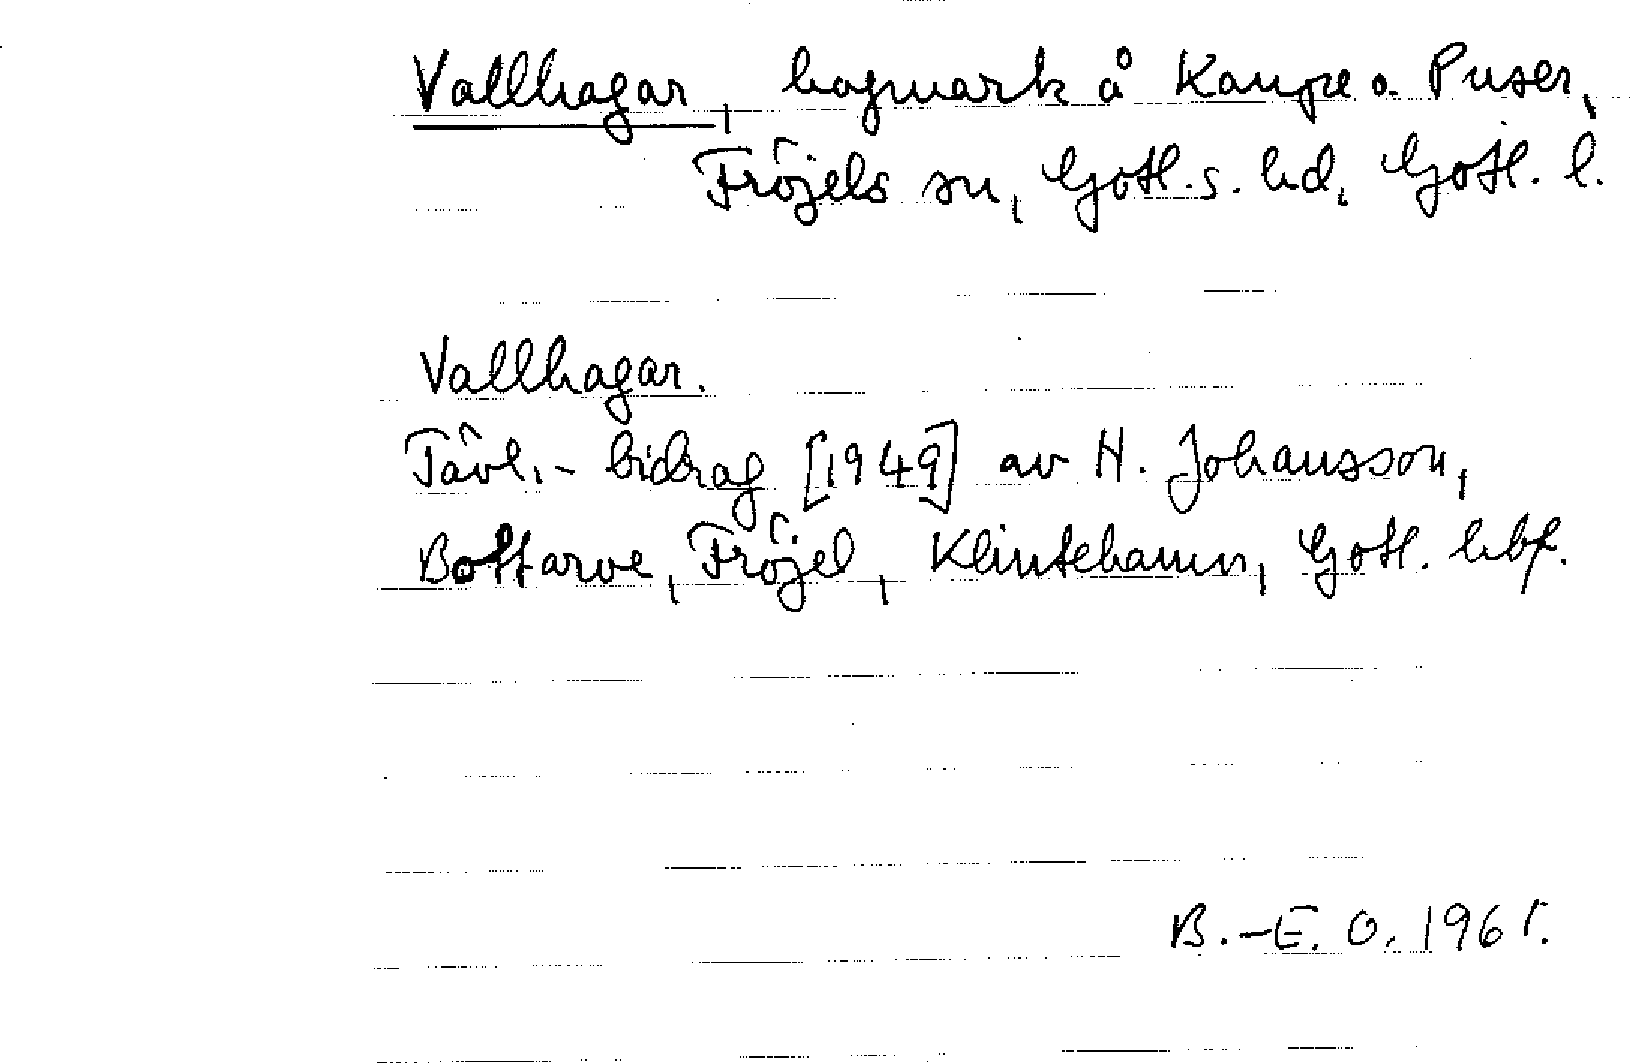 Vallhagar, hagmark å Kaupe o. Puser,
Fröjels sn, Gotl. s. hd, Gotl. l.
Vallhagar.
Tävl.-bidrag [1949] av H. Johansson,
Bottarve, Fröjel, Klintehamn, Gotl.
B.-E. O. 1965.